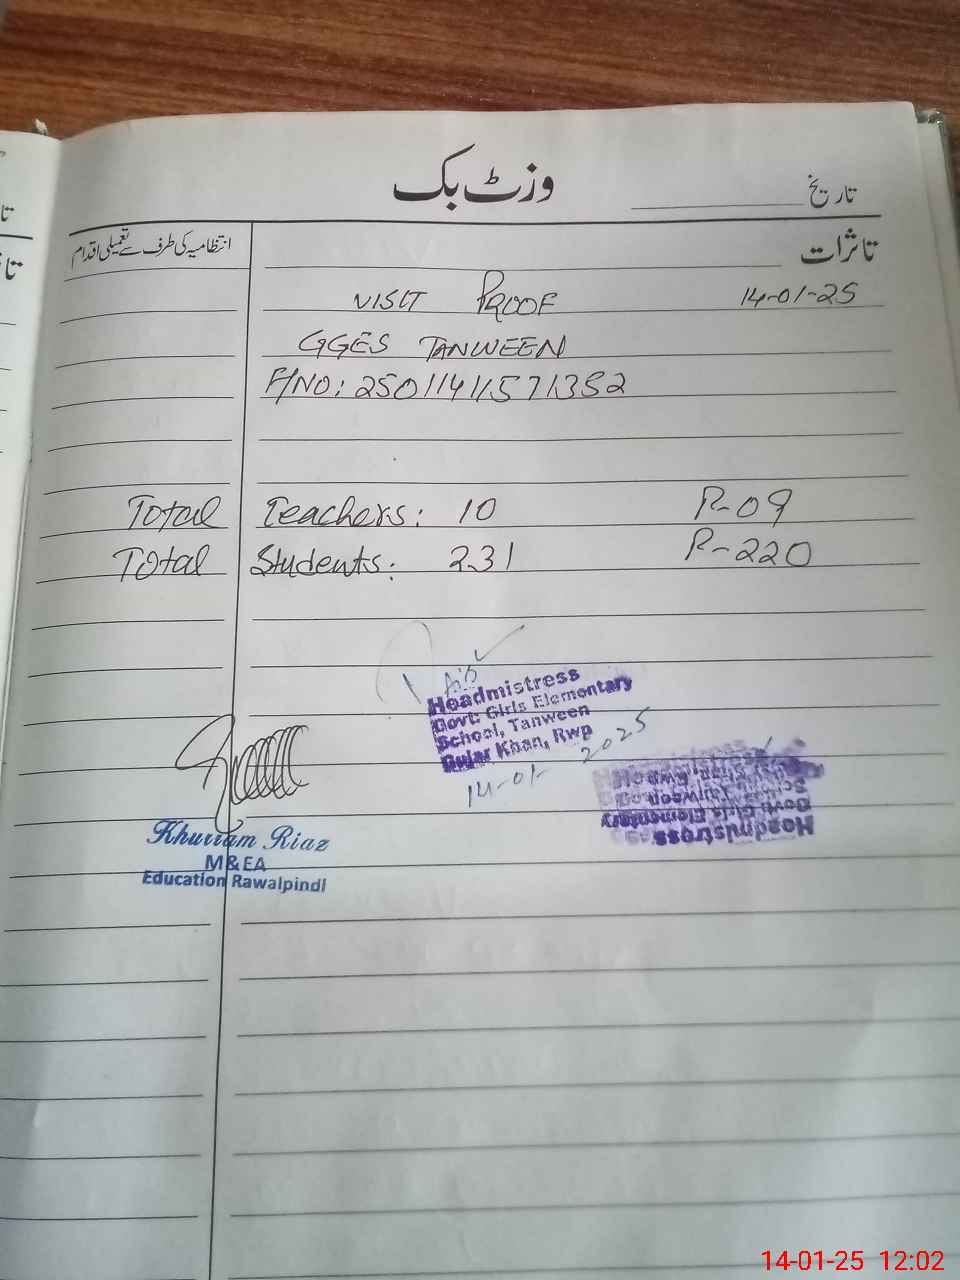 وزٹ بک
تاریخ
انتظامیہ کی طرف سے تعمیلی اقدام
تاثرات
VISIT PROOF 14-01-25
GGES TANWEEN
F/NO: 25011411571352
Total Teachers: 10 P-09
Total Students: 231 P-220
Headmistress
Govt: Girls Elementary
School, Tanween
Gujar Khan, Rwp
14-01-2025
Headmistress
Govt: Girls Elementary
School, Tanween
Gujar Khan, Rwp
Khurram Riaz
M&EA
Education Rawalpindi
14-01-25 12:02